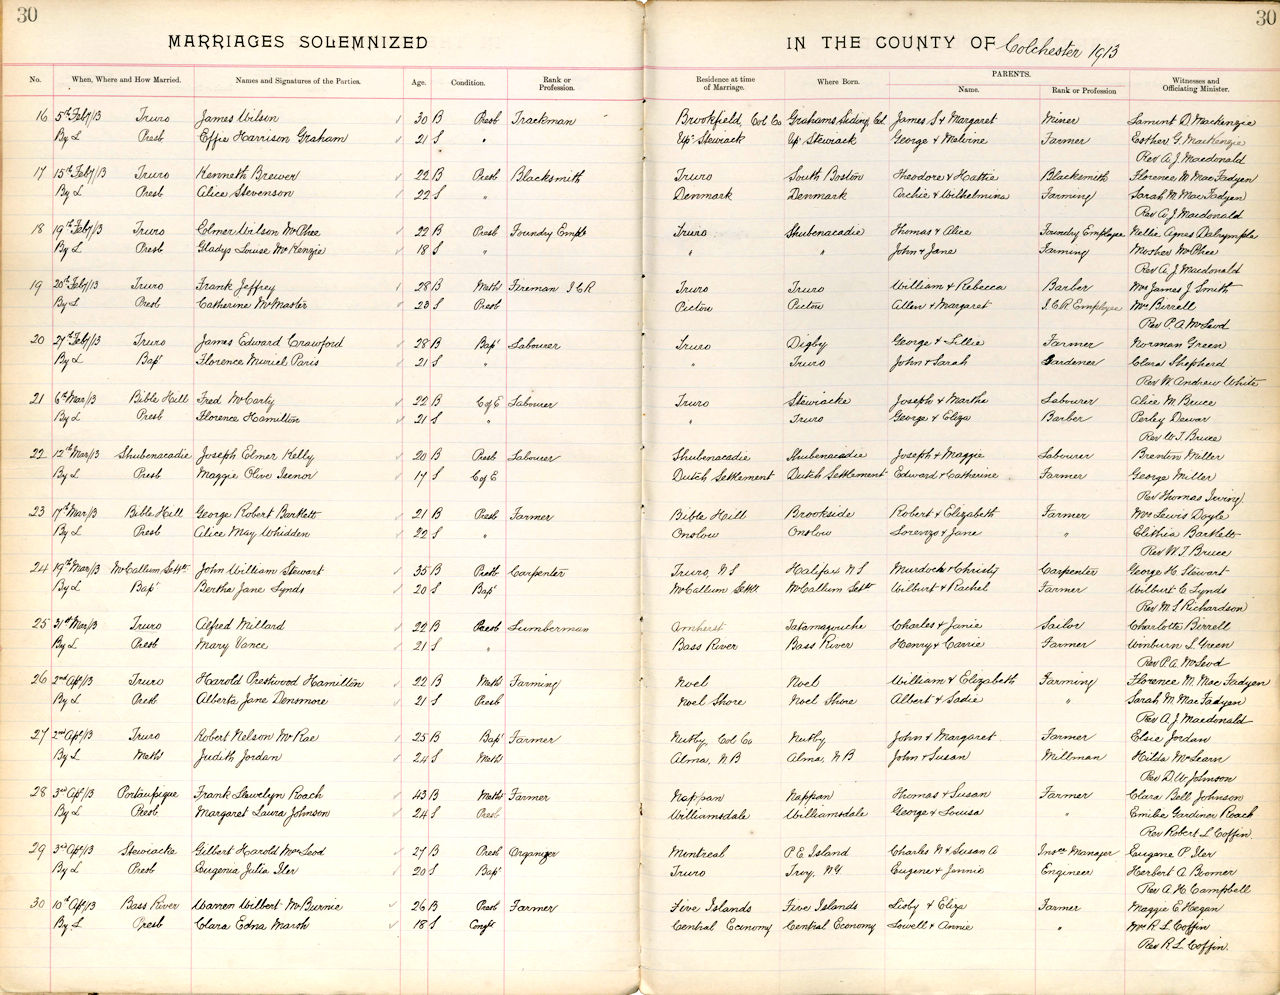 30
30
MARRIAGES SOLEMNIZED IN THE COUNTY OF Colchester 1913
No. When, Where and How Married. Names and Signatures of the Parties. Age. Condition. Rank or Profession. Residence at time of Marriage. Where Born. PARENTS. Name. Rank or Profession Witnesses and Officiating Minister.
16 5th Feby/13 Truro James Wilson 30 B Presb Trackman Brookfield, Col Co Grahams Siding, Col. James S & Margaret Miner D. Mackenzie
By L Presb Effie Harrison Graham 21 S " Up. Stewiack Up. Stewiack George & Melvine Farmer Esther G. MacKenzie
Rev A. J. Macdonald
17 15th Feby/13 Truro Kenneth Brewer 22 B Presb Blacksmith Truro South Boston Theodore & Hattie Blacksmith Florence M. MacFadyen
By L Presb Alice Stevenson 22 S " Denmark Denmark Archie & Wilhelmina Farming Sarah M. MacFadyen
Rev A. J. Macdonald
18 19th Feby/13 Truro Elmer Wilson McPhee 22 B Presb Foundry Emple Truro Shubenacadie Thomas & Alice Foundry Employee Nellie Agnes Dalrymple
By L Presb Gladys Louise McKenzie 18 S " " " John & Jane Farming Mosher McPhee
Rev A. J. Macdonald
19 20th Feby/13 Truro Frank Jeffrey 28 B Meth Fireman I C R Truro Truro William & Rebecca Barber Mrs James J. Smith
By L Presb Catherine McMaster 23 S Presb Pictou Pictou Allen & Margaret I.C.R Employee Mrs Birrell
Rev P. A. McLeod
20 27th Feby/13 Truro James Edward Crawford 28 B Bap' Labourer Truro Digby George & Lillie Farmer Norman Green
By L Bap' Florence Muriel Paris 21 S " " Truro John & Sarah Gardener Clara Shepherd
Rev W. Andrew White
21 6th Mar/13 Bible Hill Fred McCarty 22 B C of E Labourer Truro Stewiacke Joseph & Martha Labourer Alice M. Bruce
By L Presb Florence Hamilton 21 S " " Truro George & Eliza Barber Perley Dewar
Rev W. T. Bruce
22 12th Mar/13 Shubenacadie Joseph Elmer Kelly 20 B Presb Labourer Shubenacadie Shubenacadie Joseph & Maggie Labourer Brenton Miller
By L Presb Maggie Olive Isenor 17 S C of E Dutch Settlement Dutch Settlement Edward & Catherine Farmer George Miller
Rev Thomas Irving
23 17th Mar/13 Bible Hill George Robert Bartlett 21 B Presb Farmer Bible Hill Brookside Robert & Elizabeth Farmer Mrs Lewis Doyle
By L Presb Alice May Whidden 22 S " Onslow Onslow Lorenzo & Jane " Elithia Bartlett
Rev W. T. Bruce
24 19th Mar/13 McCallum Settt. John William Stewart 35 B Presb Carpenter Truro, N S Halifax N S Murdock & Christy Carpenter George H. Stewart
By L Bap' Bertha Jane Lynds 20 S Bap' McCallum Settt. McCallum Settt Wilburt & Rachel Farmer Wilburt C. Lynds
Rev M. S. Richardson
25 21st Mar/13 Truro Alfred Millard 22 B Presb Lumberman Amherst Tatamagouche Charles & Janie Sailor Charlotte Birrell
By L Presb Mary Vance 21 S " Bass River Bass River Henry & Carrie Farmer Winburn L. Green
Rev P. A. McLeod
26 2nd Apl/13 Truro Harold Prestwood Hamilton 22 B Meth Farming Noel Noel William & Elizabeth Farming Florence M. MacFadyen
By L Presb Alberta Jane Densmore 21 S Presb Noel Shore Noel Shore Albert & Sadie " Sarah M. MacFadyen
Rev A. J. Macdonald
27 2nd Apl/13 Truro Robert Nelson McRae 25 B Bap' Farmer Nutby, Col Co Nutby John & Margaret Farmer Elsie Jordan
By L Meth Judith Jordan 24 S Meth Alma, N B Alma, N B John & Susan Millman Hilda McLearn
Rev D. W. Johnson
28 3rd Apl/13 Portaupique Frank Llewelyn Roach 43 B Meth Farmer Nappan Nappan Thomas & Susan Farmer Clara Bell Johnson
By L Presb Margaret Laura Johnson 24 S Presb Williamsdale Williamsdale George & Louisa " Emilie Gardiner Roach
Rev Robert L. Coffin
29 3rd Apl/13 Stewiacke Gilbert Harold MacLeod 27 B Presb Organizer Montreal P. E Island Charles N & Susan A Insce Manager Eugene P. Iler
By L Presb Eugenia Julia Iler 20 S Bap' Truro Troy, N.Y. Eugene & Jennie Engineer Herbert A. Boomer
Rev A. H. Campbell
30 10th Apl/13 Bass River Warren Wilbert McBurnie 26 B Presb Farmer Five Islands Five Islands Libby & Eliza Farmer Maggie E. Hegan
By L Presb Clara Edna Marsh 18 S Congl Central Economy Central Economy Lowell & Annie " Mrs R. L. Coffin
Rev R. L. Coffin.